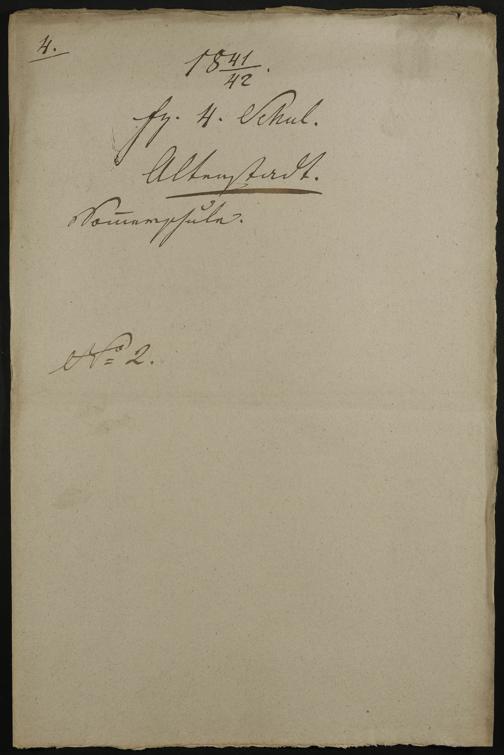 4.
18 41/42.
fz. 4. Schul.
Altenstadt.
Sommerschule.
No 2.